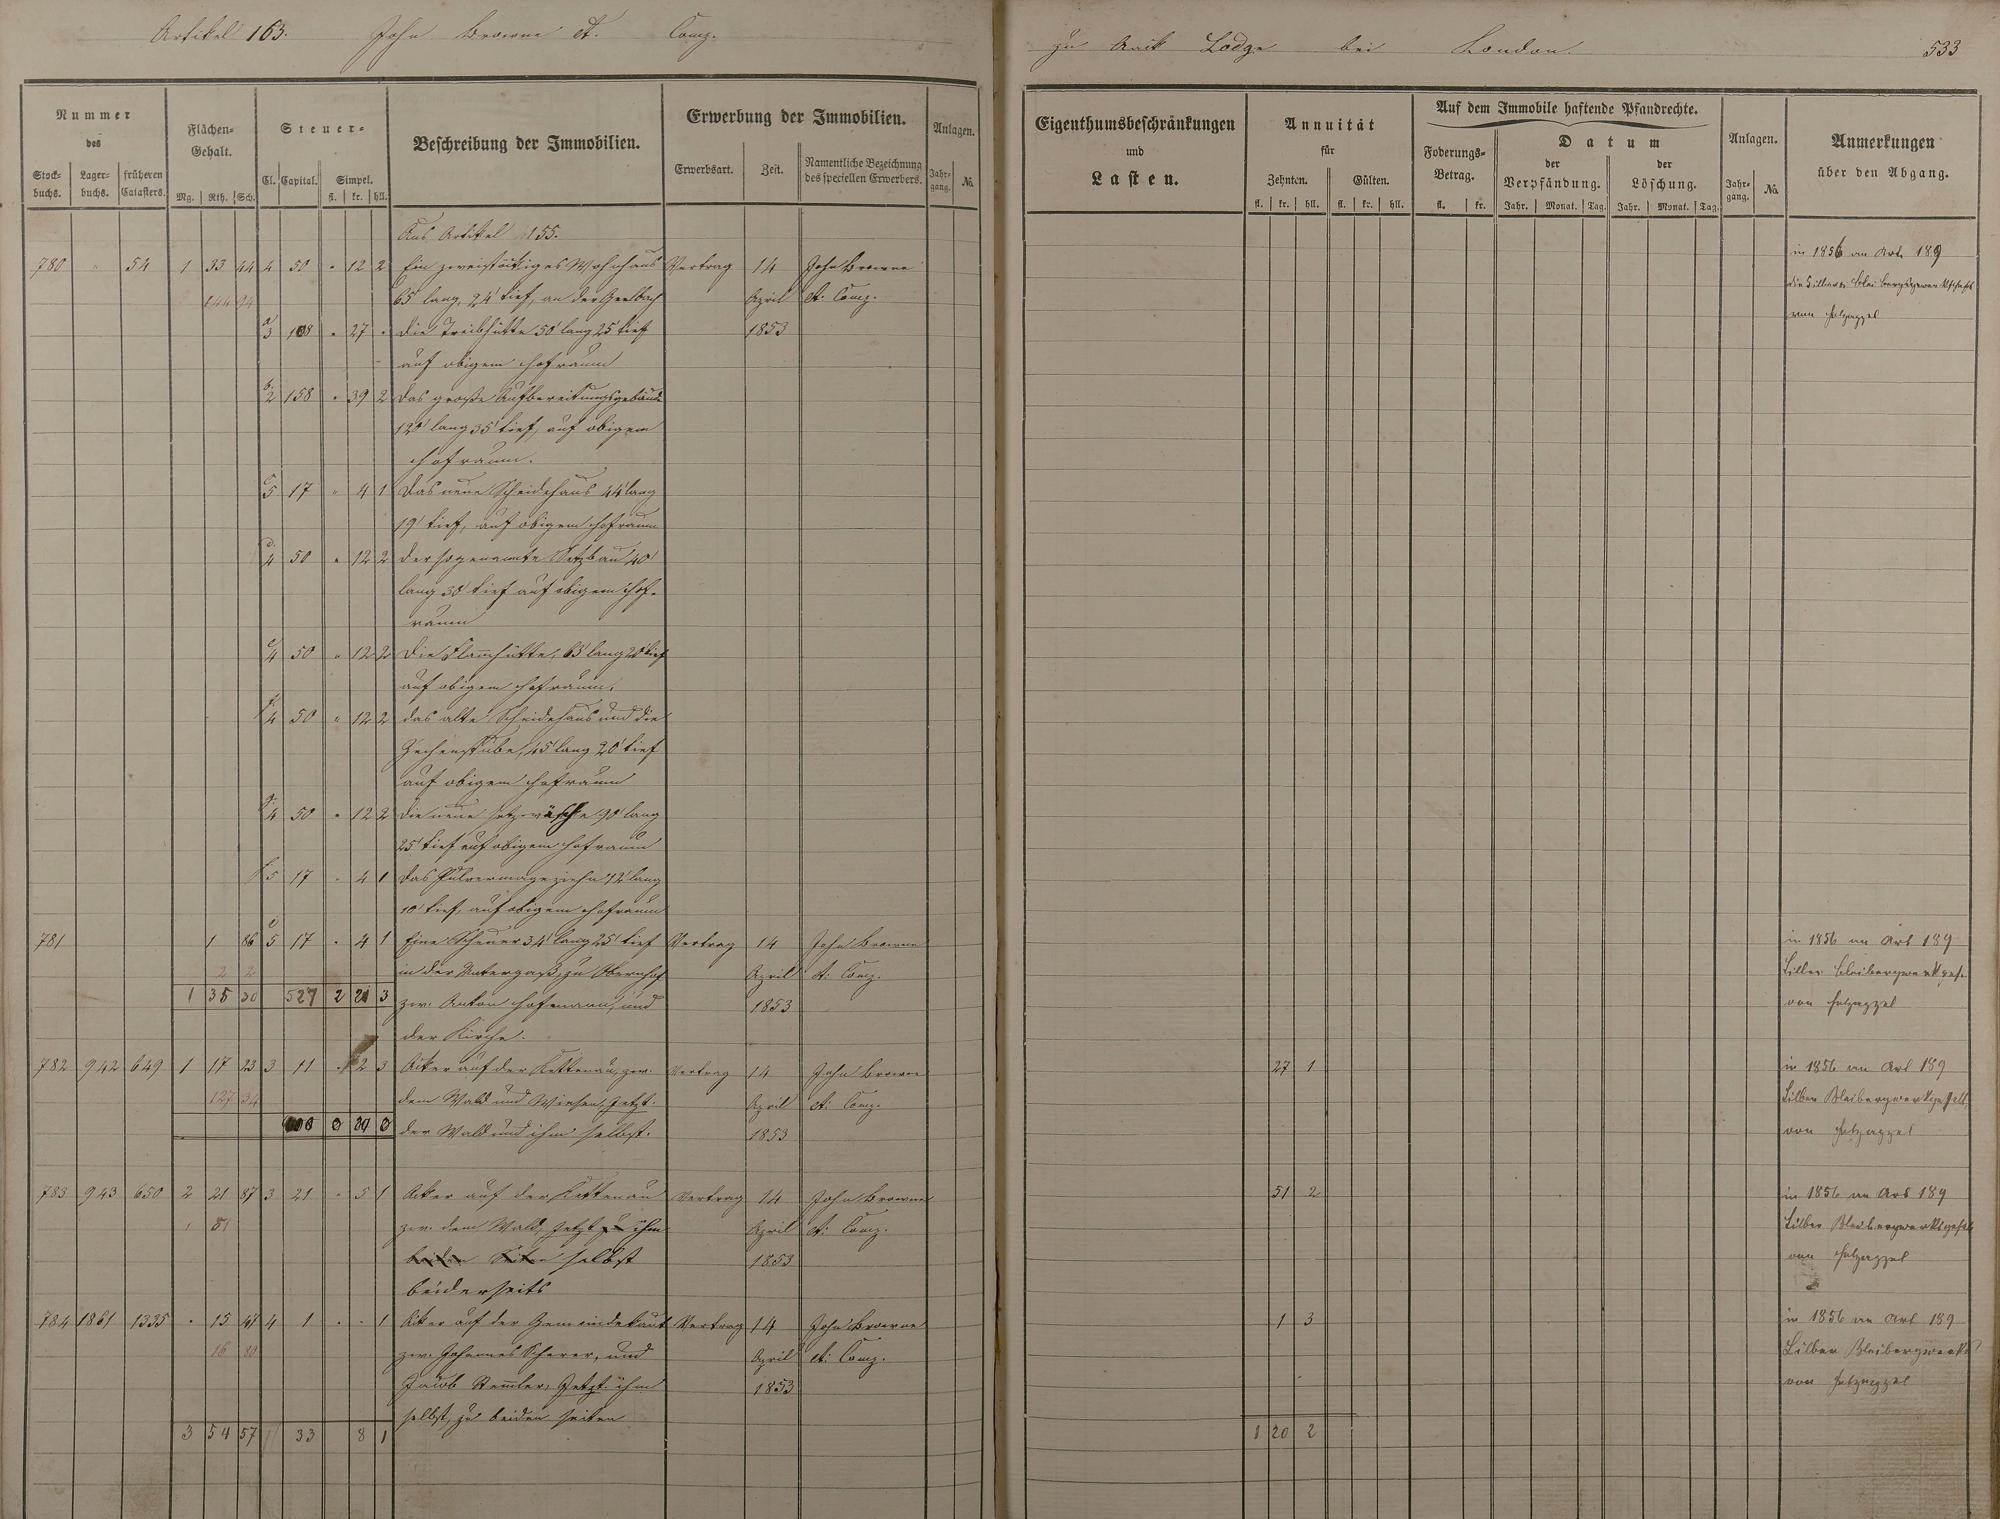 Artikel 163. John Browne & Comp.
zu Arik Lodge bei London.
533
Nummer
des
Stock-
buchs.
Lager-
buchs.
früheren
Catasters.
Flächen-
Gehalt.
Mg. Rth. Sch.
Steuer-
Cl. Capital. Simpel.
fl. kr. hll.
Beschreibung der Immobilien.
Erwerbung der Immobilien.
Erwerbsart. Zeit. Namentliche Bezeichnung
des speciellen Erwerbers.
Anlagen.
Jahr-
gang. No.
Eigenthumsbeschränkungen
und
Lasten.
Annuität
für
Zehnten. Gülten.
fl. kr. hll. fl. kr. hll.
Auf dem Immobile haftende Pfandrechte.
Foderungs-
Betrag.
fl. kr.
Datum
der
Verpfändung.
Jahr. Monat. Tag.
der
Löschung.
Jahr. Monat. Tag.
Anlagen.
Jahr-
gang. No.
Anmerkungen
über den Abgang.
Aus Artikel 155.
780 " 54 1 33 44 4 50 " 12 2 Ein zweistöckiges Wohnhaus Vertrag 14 John Browne
144 94 65' lang, 24' tief, an der Gerlbach April & Comp.
a/ 3 108 " 27 " Die Treibhütte 50' lang 25' tief 1853
auf obigem Hofraum
b. 2 158 " 39 2 Das große Aufbereitungsgebäude
120' lang 35' tief, auf obigem
Hofraum.
c/ 5 17 " 4 1 Das neue Scheidehaus 44' lang
19' tief, auf obigem Hofraum
d. 4 50 " 12 2 Der sogenannte Setzbau 40'
lang 30' tief auf obigem Hof-
raum
e/ 4 50 " 12 2 Die Flammhütte, 63' lang 20' tief
auf obigem Hofraum.
f. 4 50 " 12 2 das alte Scheidehaus und die
Zechenstube, 45' lang 20' tief
auf obigem Hofraum
g. 4 50 " 12 2 Die neue Setzwäsche 90' lang
25' tief auf obigem Hofraum
5 17 " 4 1 Das Pulvermagaziehn 12' lang
10' tief, auf obigem Hofraum
781 1 86 i 5 17 " 4 1 Eine Scheuer 34' lang 25' tief Vertrag 14 John Browne
2 2 in der Untergaß, zu Obernhof April & Comp.
1 35 30 527 2 21 3 zw. Anton Hofmann, und 1853
der Kirche.
782 942 649 1 17 23 3 11 " 2 3 Aker auf der Kettenau, zw. Vertrag 14 John Browne
127 34 dem Wald und Wiesen, Jetzt: April & Comp.
der Wald und ihm selbst. 1853
783 943 650 2 21 87 3 21 " 5 1 Aker auf der Kettenau Vertrag 14 John Browne
1 81 zw. dem Wald, Jetzt zu ihm April & Comp.
beiden Seiten selbst 1853
beiderseits
784 1861 1335 " 15 47 4 1 " " 1 Aker auf der Gemeindekaut Vertrag 14 John Browne
16 80 zw. Johannes Scherer, und April & Comp.
Jacob Stemler, Jetzt: ihm 1853
selbst, zu beiden seiten
3 54 57 33 8 1
27 1
51 2
1 3
1 20 2
in 1856 an Art. 189
die Silber & Blei bergwerksgesellschaft
von Holzappel
in 1856 an Art 189
Silber Bleibergwerkges.
von Holzappel
in 1856 an Art 189
Silber Bleibergwerksgesell.
von Holzappel
in 1856 an Art 189
Silber Bleibergwerksgesells
von Holzappel
in 1856 an Art 189
Silber Bleibergwerks
von Holzappel